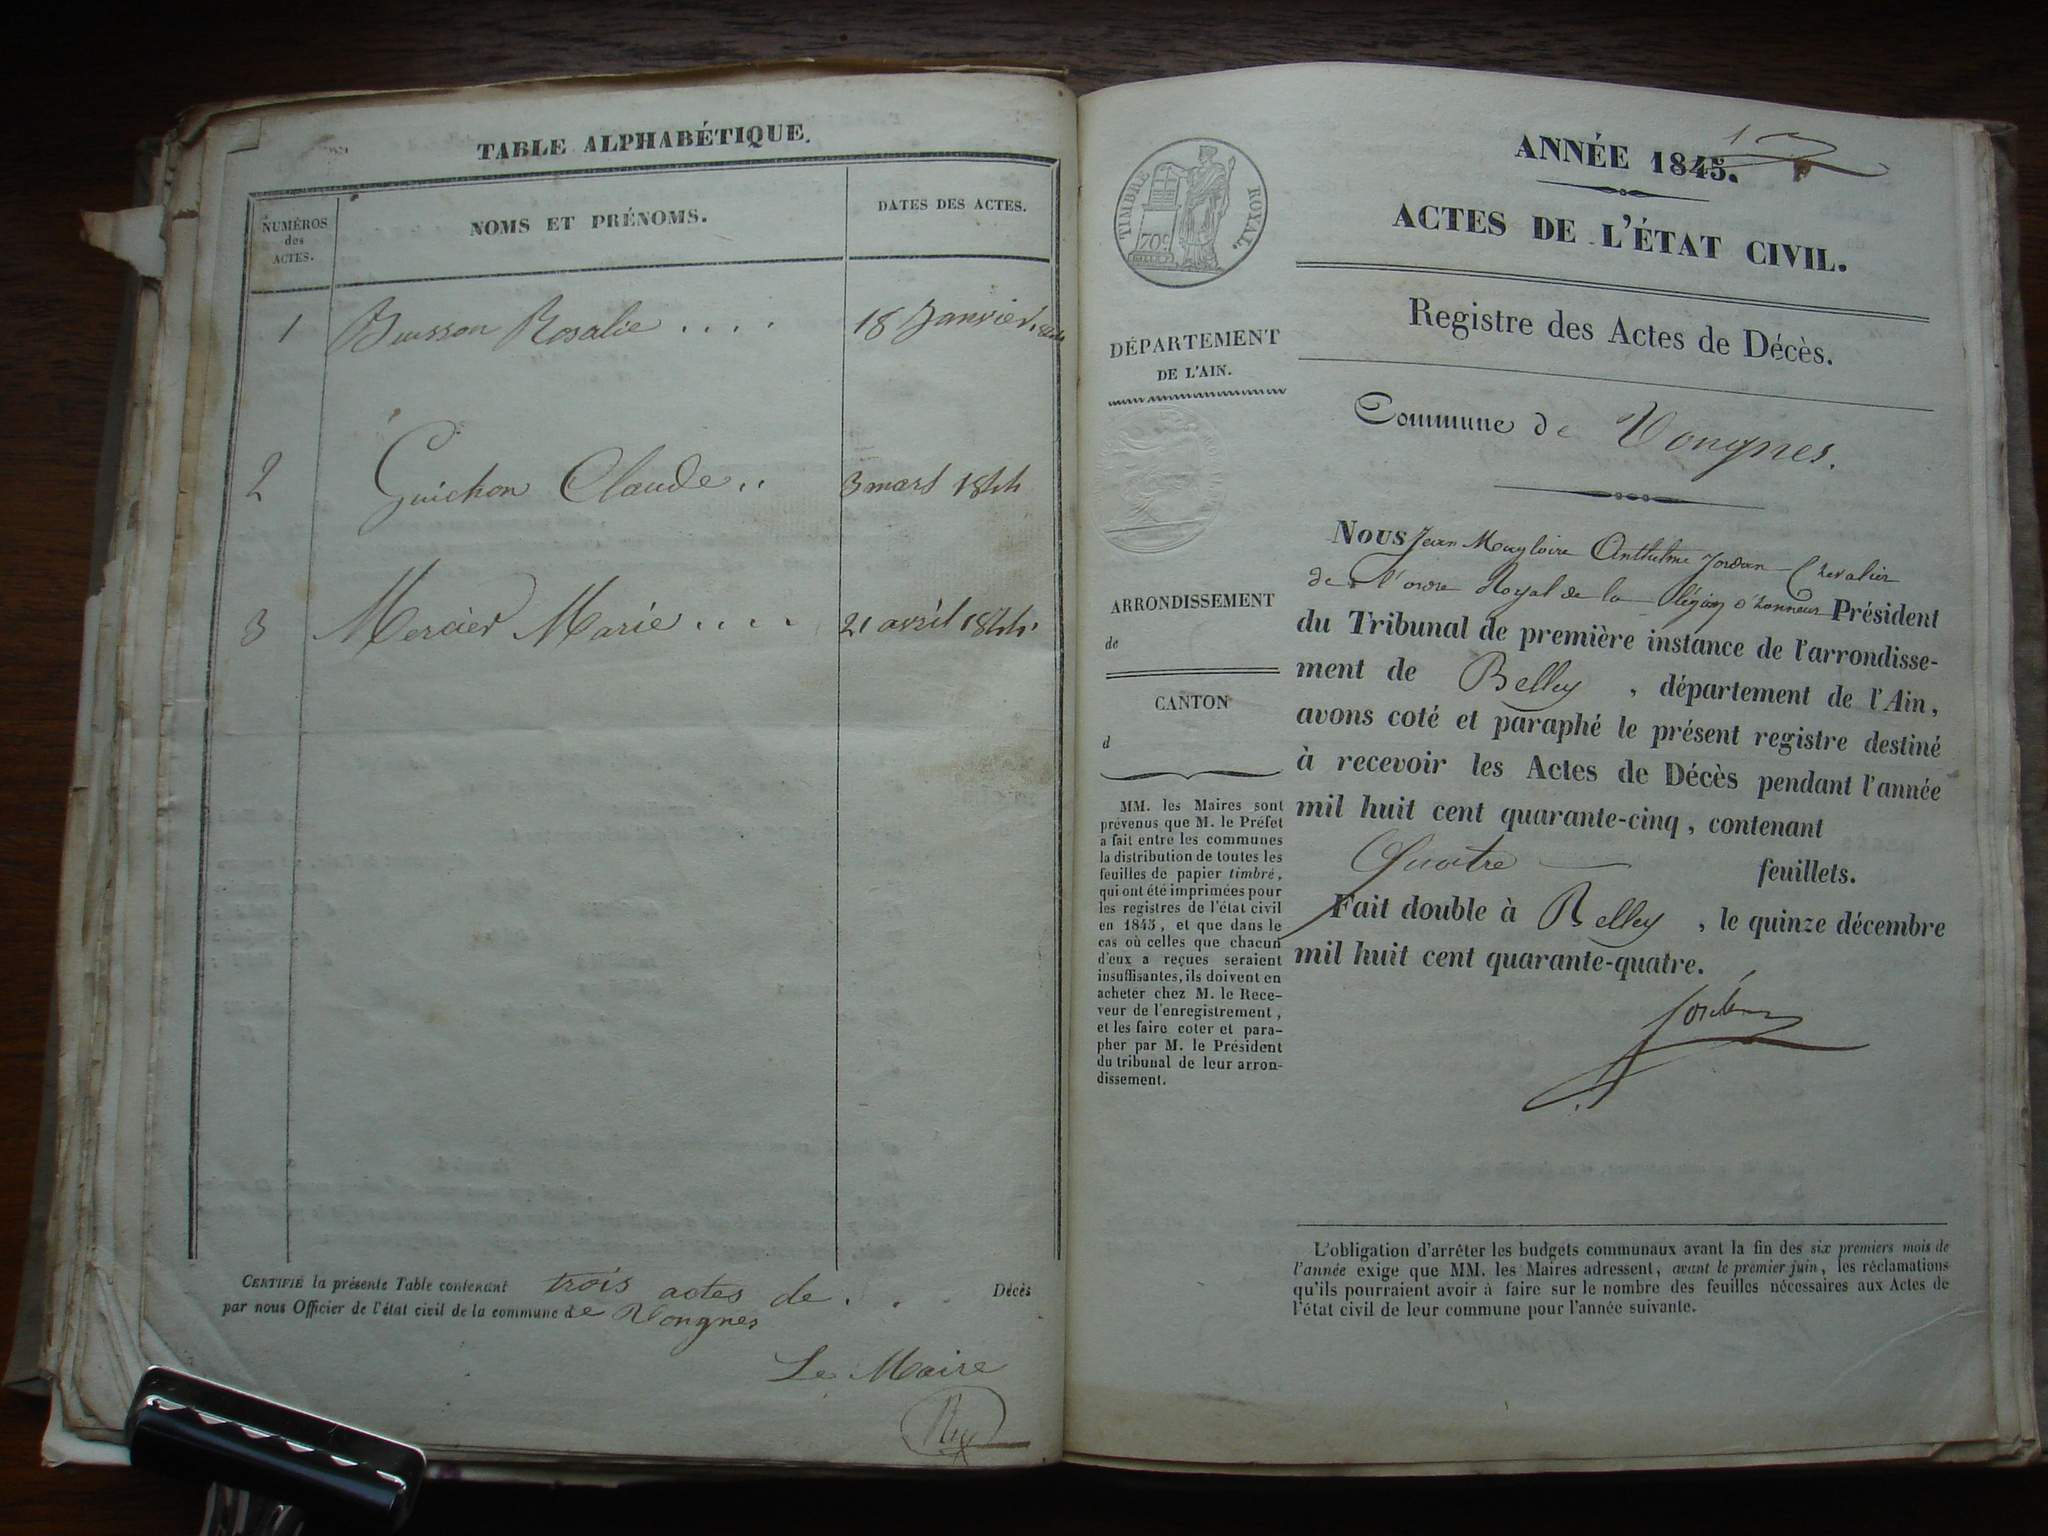 TABLE ALPHABÉTIQUE.
NUMÉROS
des
ACTES.
NOMS ET PRÉNOMS.
DATES DES ACTES.
1 Buisson Rosalie .... 18 Janvier 1844
2 Guichon Claude .. 3 mars 1844
3 Mercier Marie .... 21 avril 1844.
CERTIFIÉ la présente Table contenant trois actes de . . Décès
par nous Officier de l'état civil de la commune de Vongnes
Le Maire
ANNÉE 1845.
1
ACTES DE L'ÉTAT CIVIL.
Registre des Actes de Décès.
TIMBRE ROYAL.
70c
DÉPARTEMENT
DE L'AIN.
ARRONDISSEMENT
de
CANTON
d
MM. les Maires sont
prévenus que M. le Préfet
a fait entre les communes
la distribution de toutes les
feuilles de papier timbré,
qui ont été imprimées pour
les registres de l'état civil
en 1845, et que dans le
cas où celles que chacun
d'eux a reçues seraient
insuffisantes, ils doivent en
acheter chez M. le Rece-
veur de l'enregistrement,
et les faire coter et para-
pher par M. le Président
du tribunal de leur arron-
dissement.
Commune de Vongnes.
Nous Jean Magloire Anthelme Jordan Chevalier
de l'ordre Royal de la légion d'honneur Président
du Tribunal de première instance de l'arrondisse-
ment de Belley, département de l'Ain,
avons coté et paraphé le présent registre destiné
à recevoir les Actes de Décès pendant l'année
mil huit cent quarante-cinq, contenant
Quatre feuillets.
Fait double à Belley, le quinze décembre
mil huit cent quarante-quatre.
Jordan
L'obligation d'arrêter les budgets communaux avant la fin des six premiers mois de
l'année exige que MM. les Maires adressent, avant le premier juin, les réclamations
qu'ils pourraient avoir à faire sur le nombre des feuilles nécessaires aux Actes de
l'état civil de leur commune pour l'année suivante.